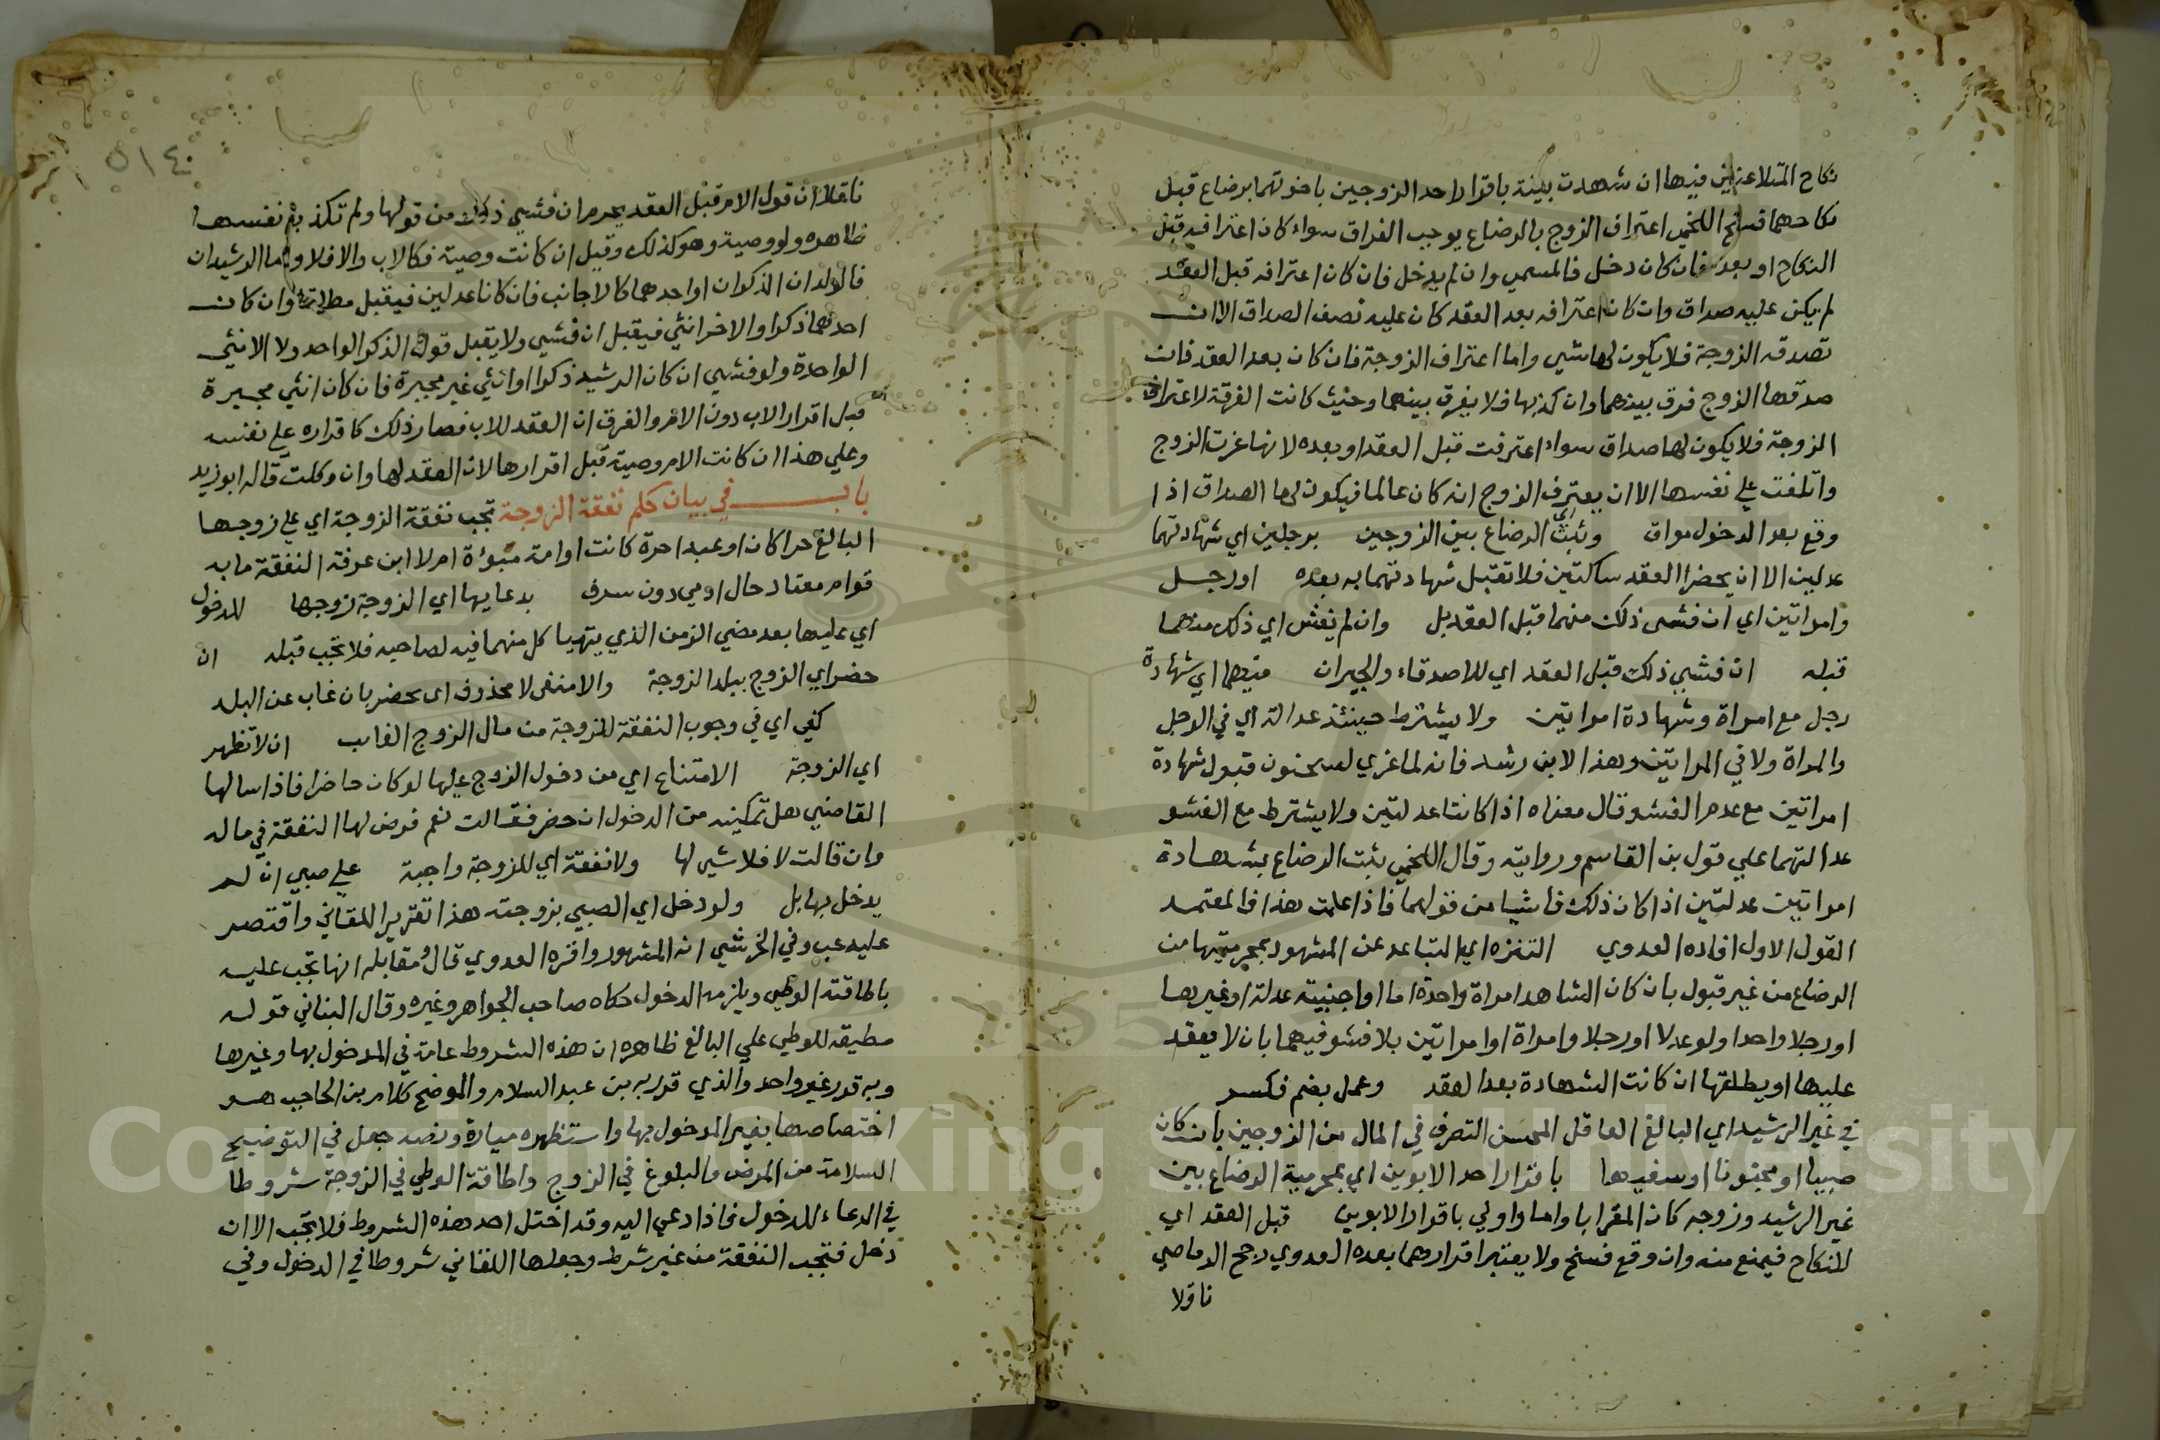 نكاح المتلاعنين فيها ان شهدت بينة باقرار احد الزوجين باخوتهما برضاع قبل
نكاحهما فسخ اللخمي اعتراف الزوج بالرضاع يوجب الفراق سواء كان اعترافه قبل
النكاح او بعده فان كان دخل فالمسمى وان لم يدخل فان كان اعترافه قبل العقد
لم يكن عليه صداق وان كان اعترافه بعد العقد كان عليه نصف الصداق الا ان
تصدقه الزوجة فلا يكون لها شي واما اعتراف الزوجة فان كان بعد العقد فان
صدقها الزوج فرق بينهما وان كذبها فلا يفرق بينهما وحيث كانت الفرقة لاعتراف
الزوجة فلا يكون لها صداق سواء اعترفت قبل العقد او بعده لانها غرت الزوج
واتلفت على نفسها الا ان يعترف الزوج انه كان عالما فيكون لها الصداق اذا
وقع بعد الدخول مواق وثبت الرضاع بين الزوجين برجلين اي شهادتهما
عدلين الا ان يحضرا العقد ساكتين فلا تقبل شهادتهما به بعده او رجل
وامراتين اي ان فشى ذلك منهما قبل العقد بل وان لم يفش اي ذلك منهما
قبله ان فشى ذلك قبل العقد اي للاصدقاء والجيران فيهما اي شهادة
رجل مع امراة وشهادة امراتين ولا يشترط حينئذ عدالة اي في الرجل
والمراة ولا في المراتين وهذا لابن رشد فانه لما عزي لسحنون قبول شهادة
امراتين مع عدم الفشو قال معناه اذا كانتا عدلتين ولا يشترط مع الفشو
عدالتهما على قول بن القاسم وروايته وقال اللخمي يثبت الرضاع بشهادة
امراتين عدلتين اذا كان ذلك فاشيا من قولهما فاذا علمت هذا فالمعتمد
القول الاول افاده العدوي التنزه اي التباعد عن المشهود بمحرميتها من
الرضاع من غير قبول بان كان الشاهد امراة واحدة اما او اجنبية عدلة او غيرها
او رجلا واحدا ولو عدلا او رجلا وامراة او امراتين بلا فشو فيهما بان لا يعقد
عليها او يطلقها ان كانت الشهادة بعد العقد وعمل بضم فكسر
في غير الرشيد اي البالغ العاقل المحسن التصرف في المال من الزوجين بان كان
صبيا او مجنونا او سفيها باقرار احد الابوين اي بمحرمية الرضاع بين
غير الرشيد وزوجه كان المقر ابا او اما واولى باقرار الابوين قبل العقد اي
للنكاح فيمنع منه وان وقع فسخ ولا يعتبر اقرارهما بعده العدوي رجح الرماصي
ناقلا
٥١٤٠
ناقلا ان قول الام قبل العقد يحرم ان فشى ذلك من قولها ولم تكذب نفسها
ظاهره ولو وصية وهو كذلك وقيل ان كانت وصية فكالاب والا فلا واما الرشيدان
فالولدان الذكران او احدهما كالاجانب فان كانا عدلين فيقبل مطلقا وان كان
احدهما ذكرا والاخر انثى فيقبل ان فشى ولا يقبل قول الذكر الواحد ولا الانثى
الواحدة ولو فشى ان كان الرشيد ذكرا او انثى غير مجبرة فان كان انثى مجبرة
قبل اقرار الاب دون الام والفرق ان العقد للاب فصار ذلك كاقراره على نفسه
وعلى هذا ان كانت الام وصية قبل اقرارها لان العقد لها وان وكلت قاله ابو زيد
باب في بيان حكم نفقة الزوجة تجب نفقة الزوجة اي على زوجها
البالغ حرا كان او عبدا حرة كانت او امة مبوءة ام لا ابن عرفة النفقة ما به
قوام معتاد حال ادمي دون سرف بدعايها اي الزوجة زوجها للدخول
اي عليها بعد مضي الزمن الذي يتهيا كل منهما فيه لصاحبه فلا تجب قبله ان
حضر اي الزوج ببلد الزوجة والا منفي لا محذوف اي يحضر بان غاب عن البلد
كفى اي في وجوب النفقة للزوجة من مال الزوج الغايب ان لا تظهر
اي الزوجة الامتناع اي من دخول الزوج عليها لو كان حاضرا فاذا سالها
القاضي هل تمكينه من الدخول ان حضر فقالت نعم فرض لها النفقة في ماله
وان قالت لا فلا شي لها ولا نفقة اي للزوجة واجبة على صبي ان لم
يدخل بها بل ولو دخل اي الصبي بزوجته هذا تقرير اللقاني واقتصر
عليه عب وفي الخرشي انه المشهور واقره العدوي قال ومقابله انها تجب عليه
باطاقته الوطي ويلزمه الدخول حكاه صاحب الجواهر وغيره وقال البناني قوله
مطيقة للوطي على البالغ ظاهره ان هذه الشروط عامة في المدخول بها وغيرها
وبه قرر غير واحد والذي قرر به بن عبد السلام والموضح كلام بن الحاجب هو
اختصاصها بغير المدخول بها واستظهره ميارة ونصه جعل في التوضيح
السلامة من المرض والبلوغ في الزوج واطاقة الوطي في الزوجة شروطا
في الدعاء للدخول فاذا دعي اليه وقد اختل احد هذه الشروط فلا تجب الا ان
دخل فتجب النفقة من غير شرط وجعلها اللقاني شروطا في الدخول وفي